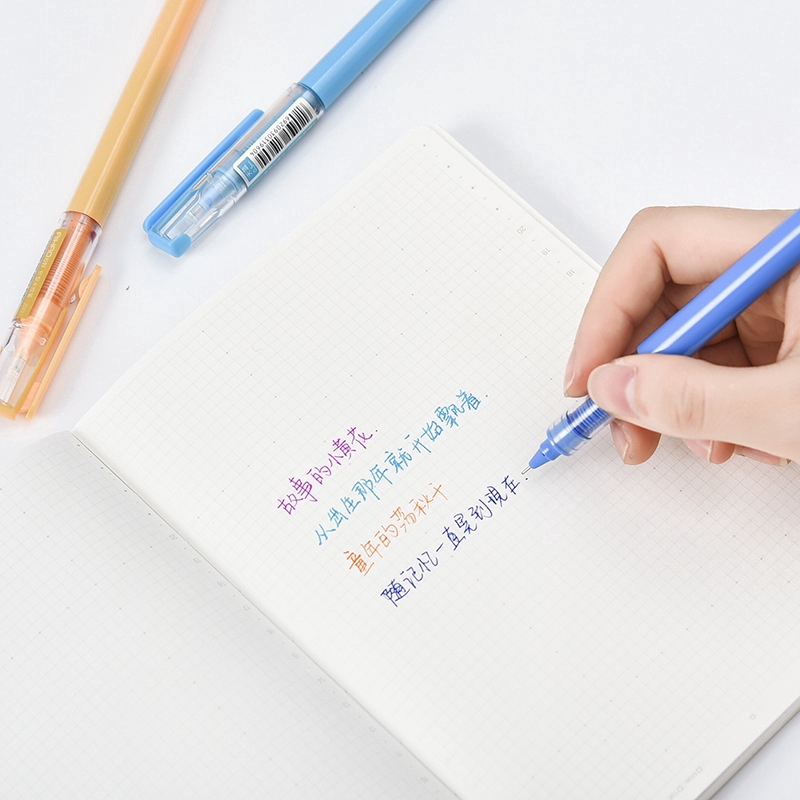 20
19
18
故事的小黄花.
从出生那年就开始飘着.
童年的荡秋千
随记忆一直晃到现在.